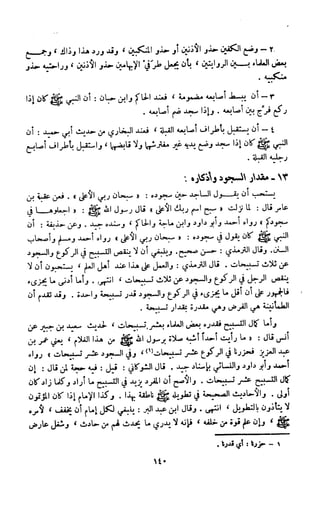 ٢ - وضع الكفين حذو الأذنين أو حذو المنكبين ، وقد ورد هذا وذاك ، وجمع
بعض العلماء بين الروايتين ، بأن يجعل طرفي الإبهامين حذو الأذنين ، وراحتيه حذو
منكبيه .
٣ - أن يبسط أصابعه مضمومة ، فعند الحاكم وابن حبان : أن النبي ﷺ كان إذا
ركع فرّج بين أصابعه . وإذا سجد ضم أصابعه .
٤ - أن يستقبل بأطراف أصابعه القبلة ، فعند البخاري من حديث أبي حميد : أن
النبي ﷺ كان إذا سجد وضع يديه غير مفترشهما ولا قابضهما ، واستقبل بأطراف أصابع
رجليه القبلة .
١٣ - مقدار السجود وأذكاره :
يستحب أن يقول الساجد حين سجوده : « سبحان ربي الأعلى » . فعن عقبة بن
عامر قال : لما نزلت « سبح اسم ربك الأعلى » قال رسول الله ﷺ : « اجعلوها في
سجودكم » رواه أحمد وأبو داود وابن ماجة والحاكم ، وسنده جيد . وعن حذيفة : أن
النبي ﷺ كان يقول في سجوده : « سبحان ربي الأعلى » رواه أحمد ومسلم وأصحاب
السنن. وقال الترمذي : حسن صحيح. وينبغي أن لا ينقص التسبيح في الركوع والسجود
عن ثلاث تسبيحات . قال الترمذي : والعمل على هذا عند أهل العلم ، يستحبون أن لا
ينقص الرجل في الركوع والسجود عن ثلاث تسبيحات ، انتهى . وأما أدنى ما يجزىء
فالجمهور على أن أقل ما يجزىء في الركوع والسجود قدر تسبيحة واحدة . وقد تقدم أن
الطمأنينة هي الفرض وهي مقدرة بمقدار تسبيحة .
وأما كمال التسبيح فقدره بعض العلماء بعشر تسبيحات ، لحديث سعيد بن جبير عن
أنس قال : « ما رأيت أحداً أشبه صلاة برسول الله ﷺ من هذا الغلام ، يعني عمر بن
عبد العزيز فحزرنا في الركوع عشر تسبيحات(١) ، وفي السجود عشر تسبيحات » رواه
أحمد وأبو داود والنسائي بإسناد جيد . قال الشوكاني : قيل : فيه حجة لمن قال : إن
كمال التسبيح عشر تسبيحات . والأصح أن المنفرد يزيد في التسبيح ما أراد وكلما زاد كان
أولى . والأحاديث الصحيحة في تطويله ﷺ ناطقة بهذا . وكذا الإمام إذا كان المؤتمون
لا يتأذون بالتطويل ، انتهى . وقال ابن عبد البر : ينبغي لكل إمام أن يخفف ، لأمره
ﷺ ، وإن علم قوة من خلفه ، فإنه لا يدري ما يحدث لهم من حادث ، وشغل عارض
١ - حزرنا : أي قدرنا .
١٤٠